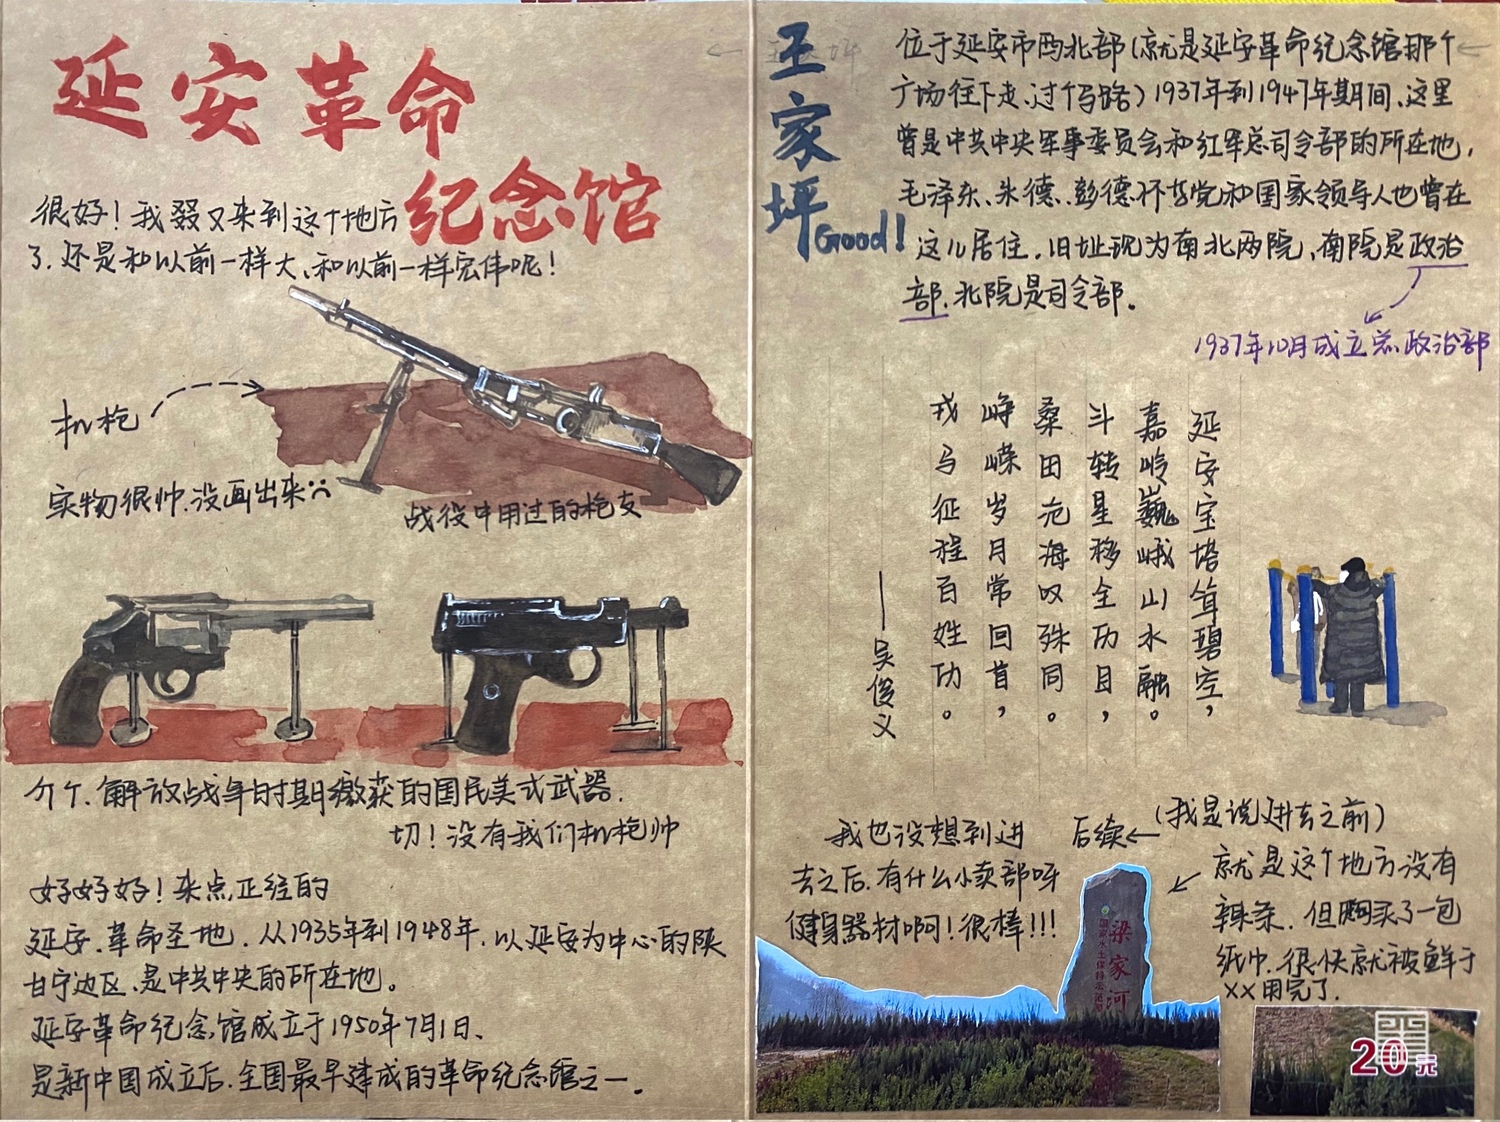 延安革命
纪念馆
很好！我叕又来到这个地方
了.还是和以前一样大、和以前一样宏伟呢！
机枪
实物很帅.没画出来
战役中用过的枪支
个个.解放战争时期缴获的国民美式武器.
切！没有我们机枪帅
好好好！来点正经的
延安.革命圣地.从1935年到1948年.以延安为中心的陕
甘宁边区.是中共中央的所在地。
延安革命纪念馆成立于1950年7月1日、
是新中国成立后.全国最早建成的革命纪念馆之一.
王家坪
Good!
位于延安市西北部(就是延安革命纪念馆那个
广场往下走.过个马路)1937年到1947年期间、这里
曾是中共中央军事委员会和红军总司令部的所在地，
毛泽东、朱德、彭德怀等党和国家领导人也曾在
这儿居住.旧址现为南北两院、南院是政治
部.北院是司令部.
1937年10月成立总政治部
延安宝塔耸碧空，
嘉岭巍峨山水融。
斗转星移全历目，
桑田沧海叹殊同。
峥嵘岁月常回首，
戎马征程百姓功。
——吴俊义
我也没想到进
去之后.有什么小卖部呀
健身器材啊！很棒!!!
后续←(我是说进去之前)
就是这个地方没有
辣条.但购买了一包
纸巾.很快就被鲜于
××用完了.
梁家河
20元